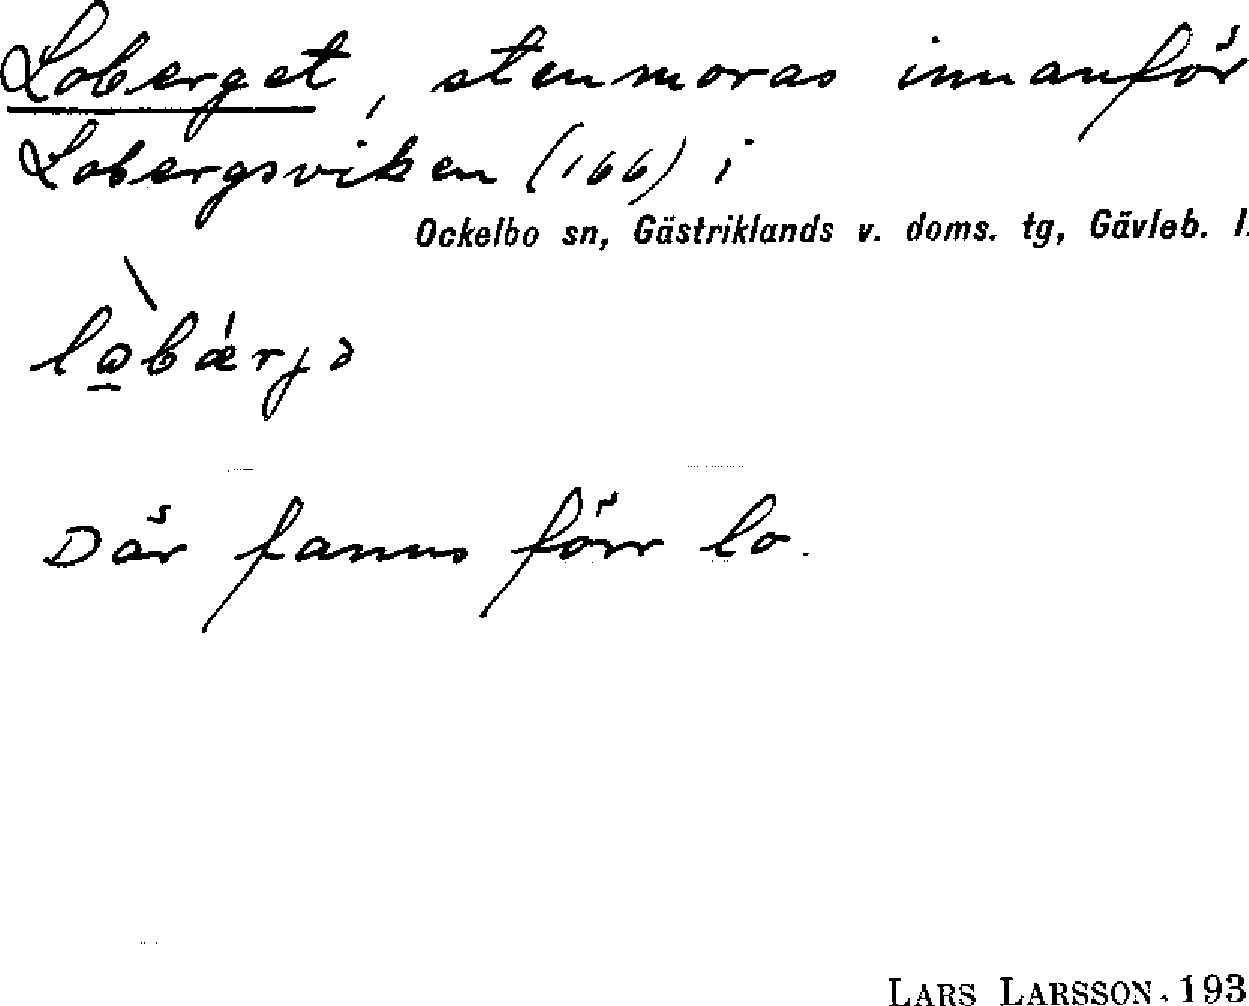 Loberget, stenmoras innanför
Lobergsviken (166) i
Ockelbo sn, Gästriklands v. doms. tg, Gävleb. l.
Där fanns förr lo.
LARS LARSSON. 193